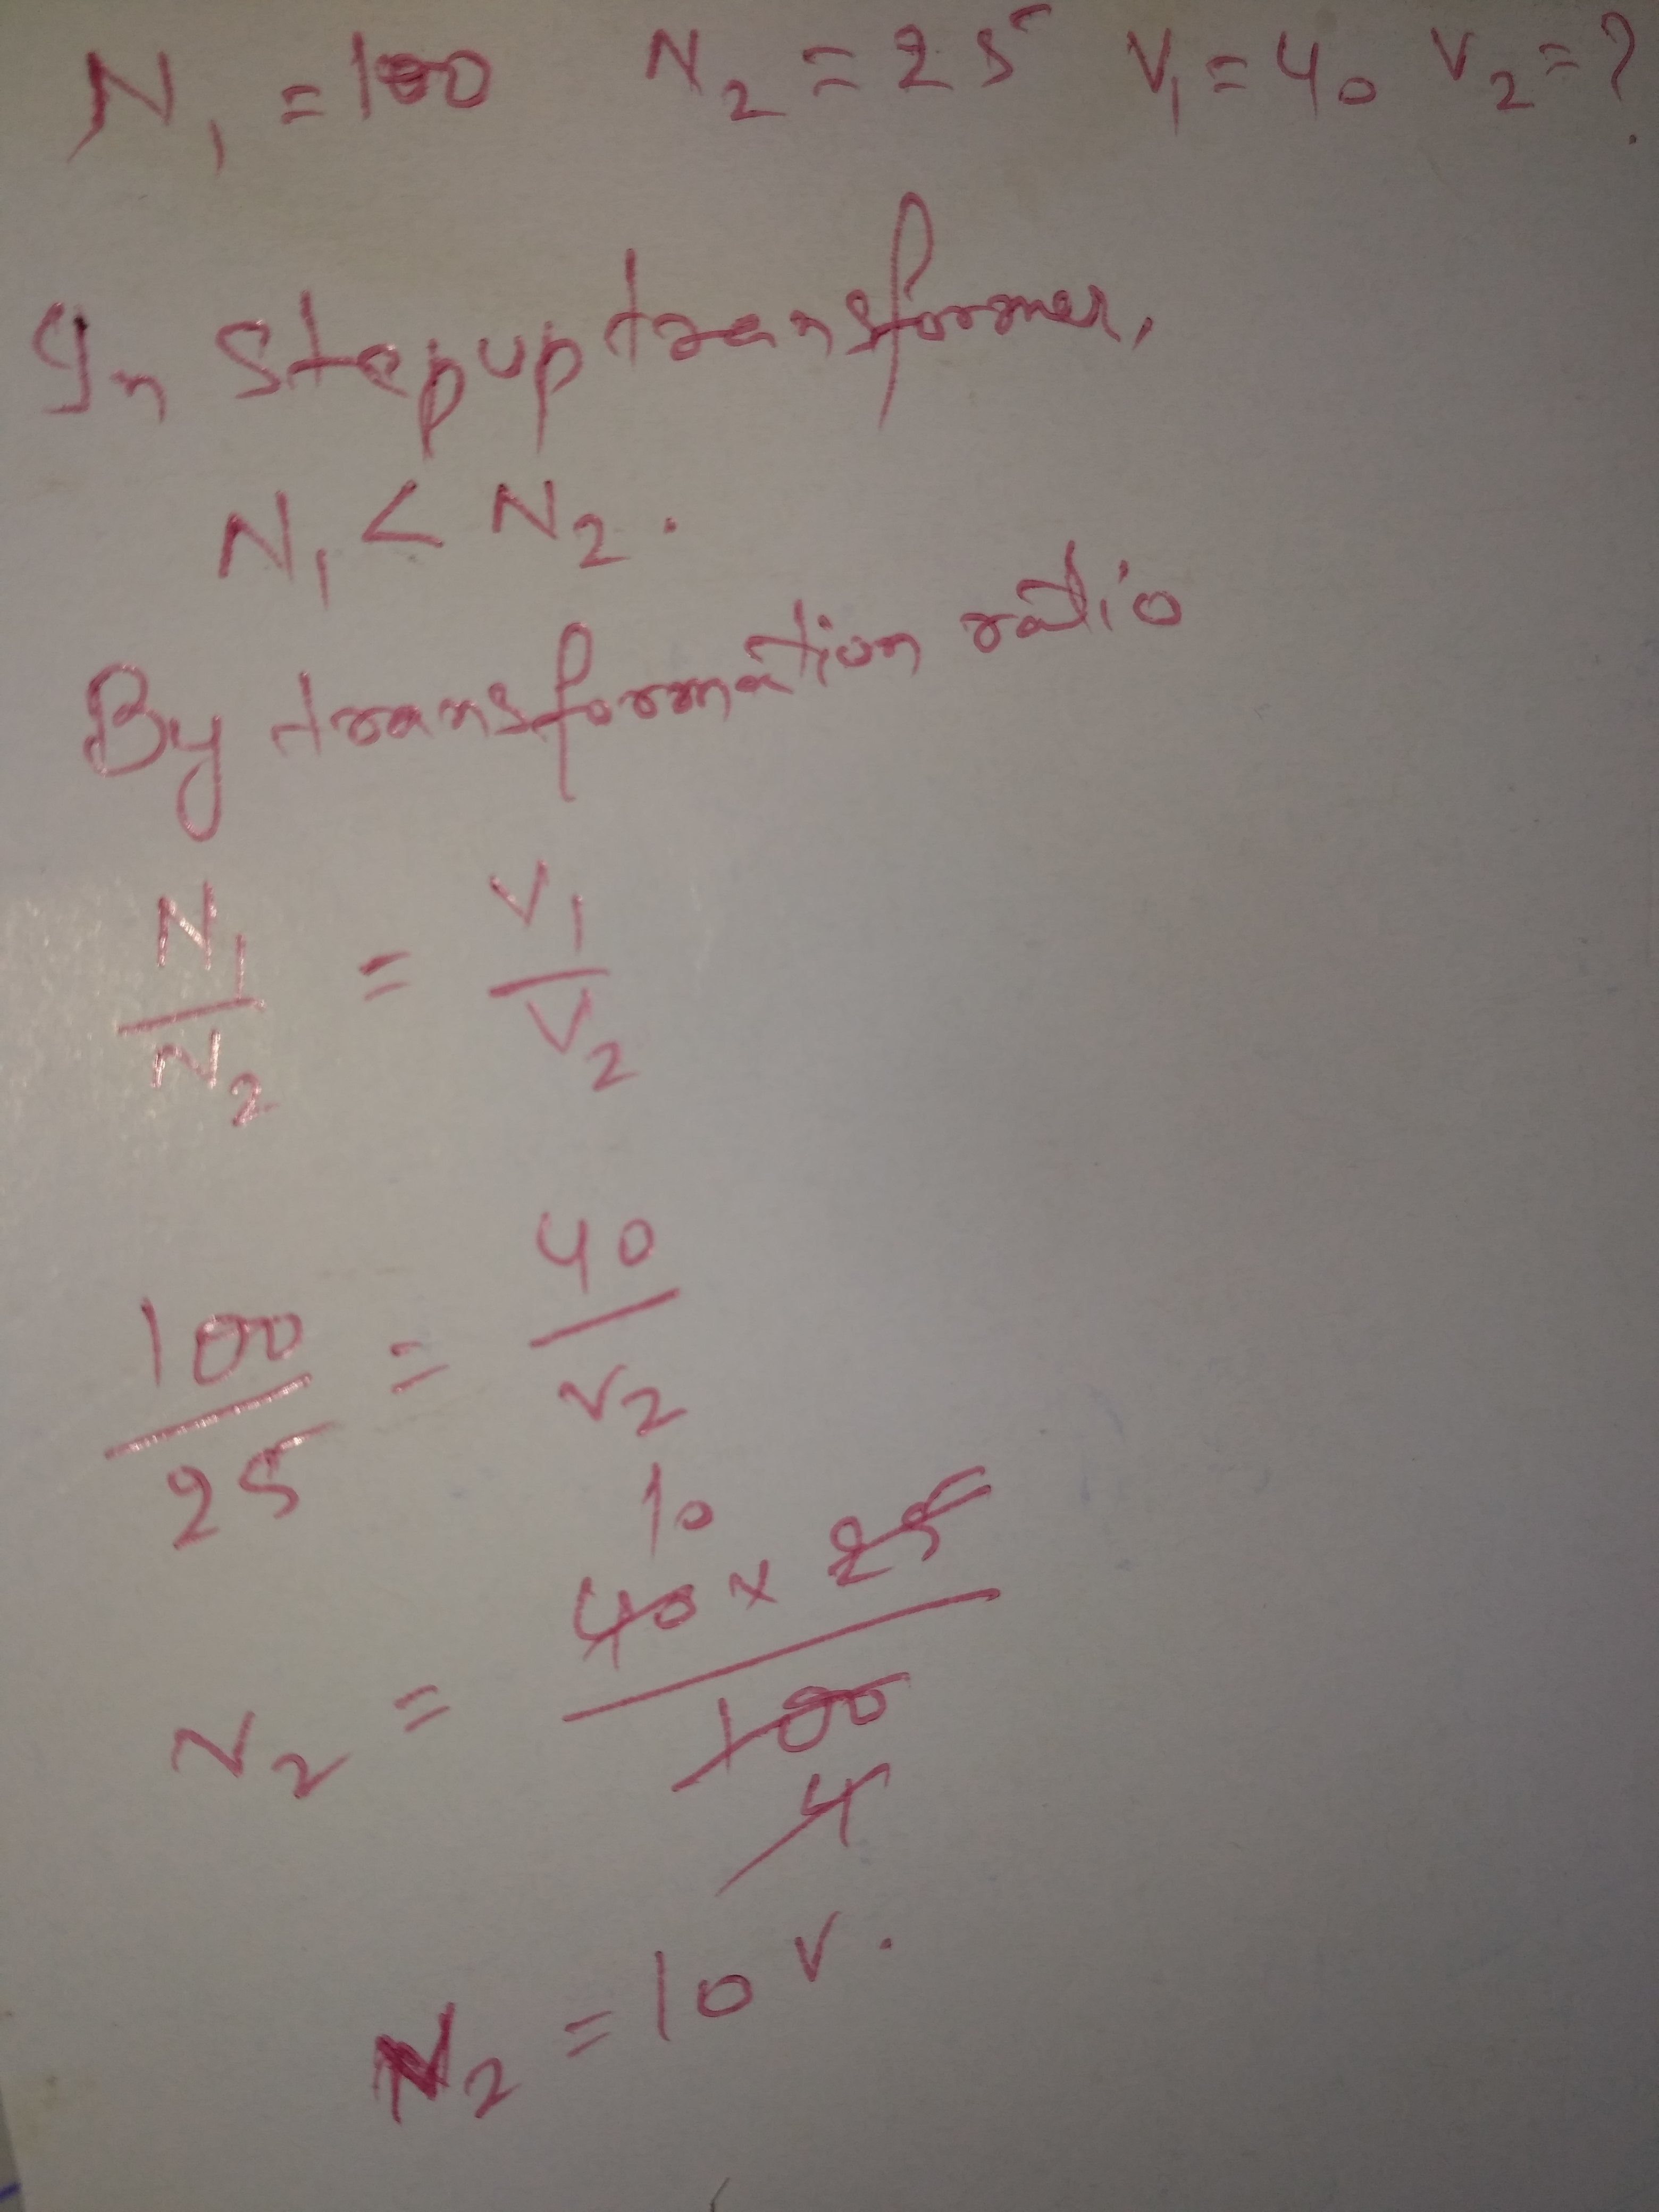 N₁ = 100 N₂ = 25 V₁ = 40 V₂ = ?
In Step up transformer,
N₁ < N₂.
By transformation ratio
N₁/N₂ = V₁/V₂
100/25 = 40/V₂
10
V₂ = 40 × 25/100
4
V₂ = 10 V.